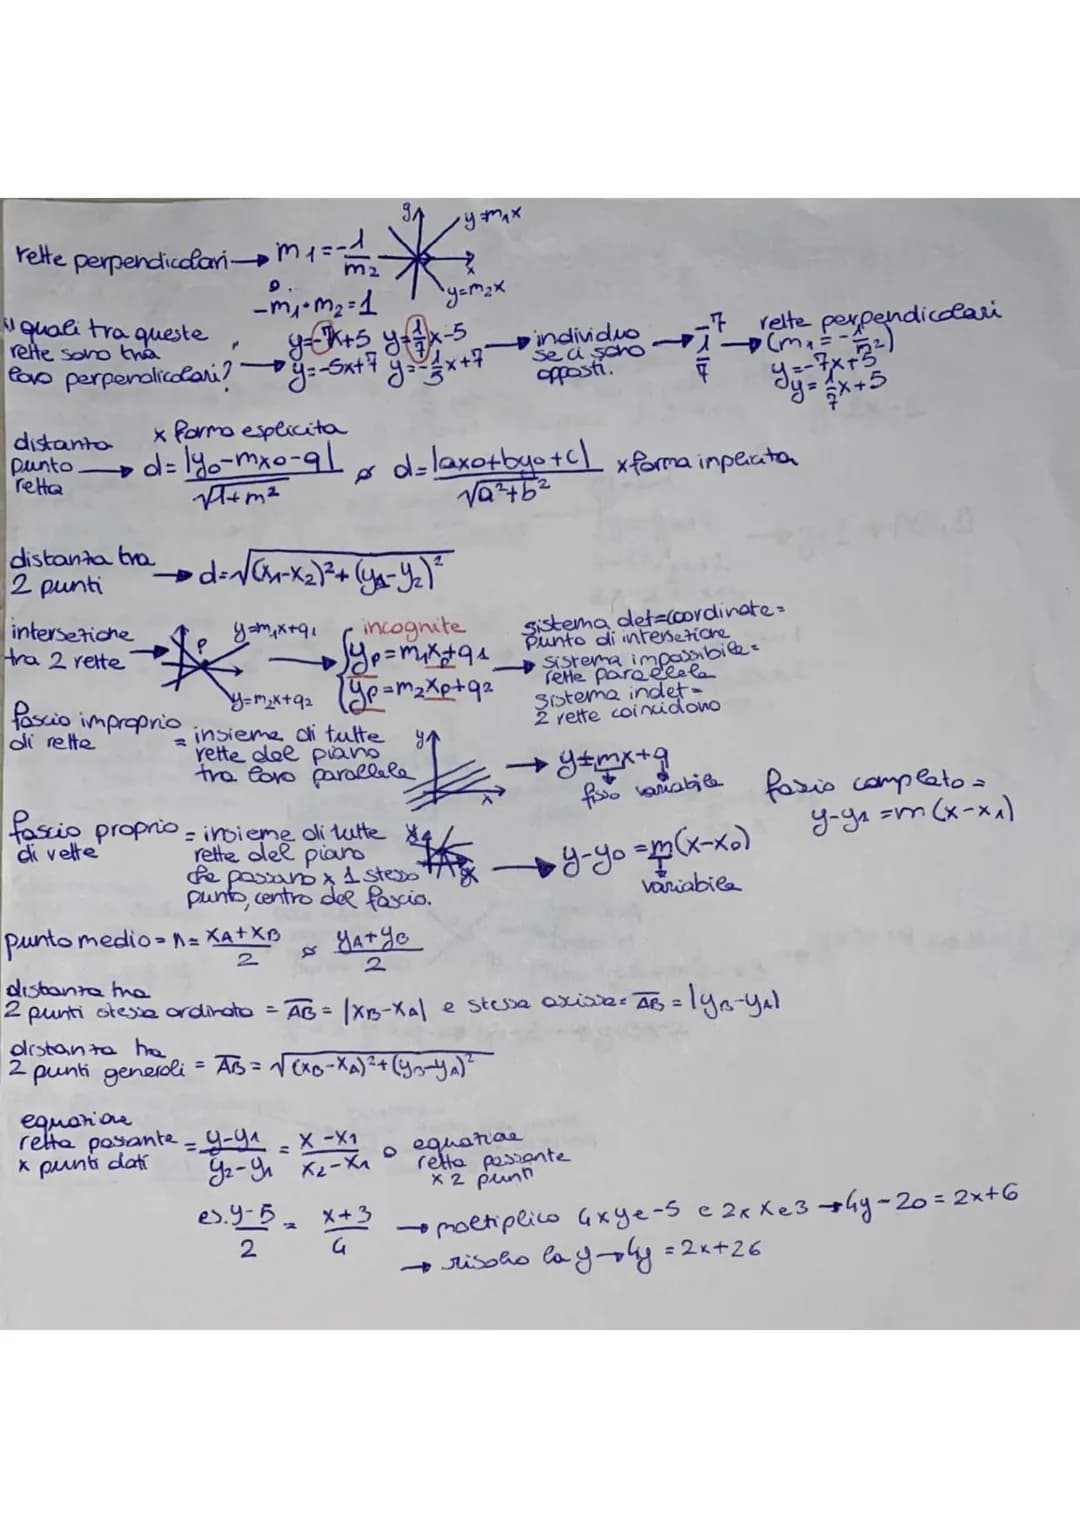 rette perpendicolari → m1 = -1/m2
y
y=m1x
x
y=m2x
o
-m1·m2=1
quali tra queste rette sono tra loro perpendicolari? → y=-7x+5 y=1/7x-5
y=-5x+7 y=-1/5x+7
→ individuo se ci sono opposti. → -7 1/7 → rette perpendicolari
y=-7x+5
y=1/7x+5
distanza punto retta → x forma esplicita d=|y0-mx0-q|/√1+m² o d=|ax0+by0+c|/√a²+b² x forma inplicita
distanza tra 2 punti → d=√(x1-x2)²+(y1-y2)²
intersezione tra 2 rette → P y=m1x+q1 y=m2x+q2 → incognite
{yp=m1xp+q1
{yp=m2xp+q2
→ sistema det=coordinate=
punto di intersezione
→ sistema impossibile=
rette parallele
sistema indet=
2 rette coincidono
fascio improprio di rette = insieme di tutte
rette del piano
tra loro parallele
y x
→ y=mx+q
fisso variabile
fascio completo=
y-y1=m(x-x1)
fascio proprio di rette = insieme di tutte
rette del piano
che passano x 1 stesso
punto, centro del fascio.
→ y-y0=m(x-x0)
variabile
punto medio = M= xA+xB/2 o yA+yB/2
distanza tra
2 punti stessa ordinata = AB = |xB-xA| e stessa ascissa= AB = |yB-yA|
distanza tra
2 punti generali = AB = √(xB-xA)²+(yB-yA)²
equazione
retta passante x punti dati = y-y1/y2-y1 = x-x1/x2-x1 o equazione
retta passante
x 2 punti
es. y-5/2 = x+3/4 → moltiplico 4 x y e -5 e 2 x x e 3 → 4y-20=2x+6
→ risolvo la y → 4y=2x+26